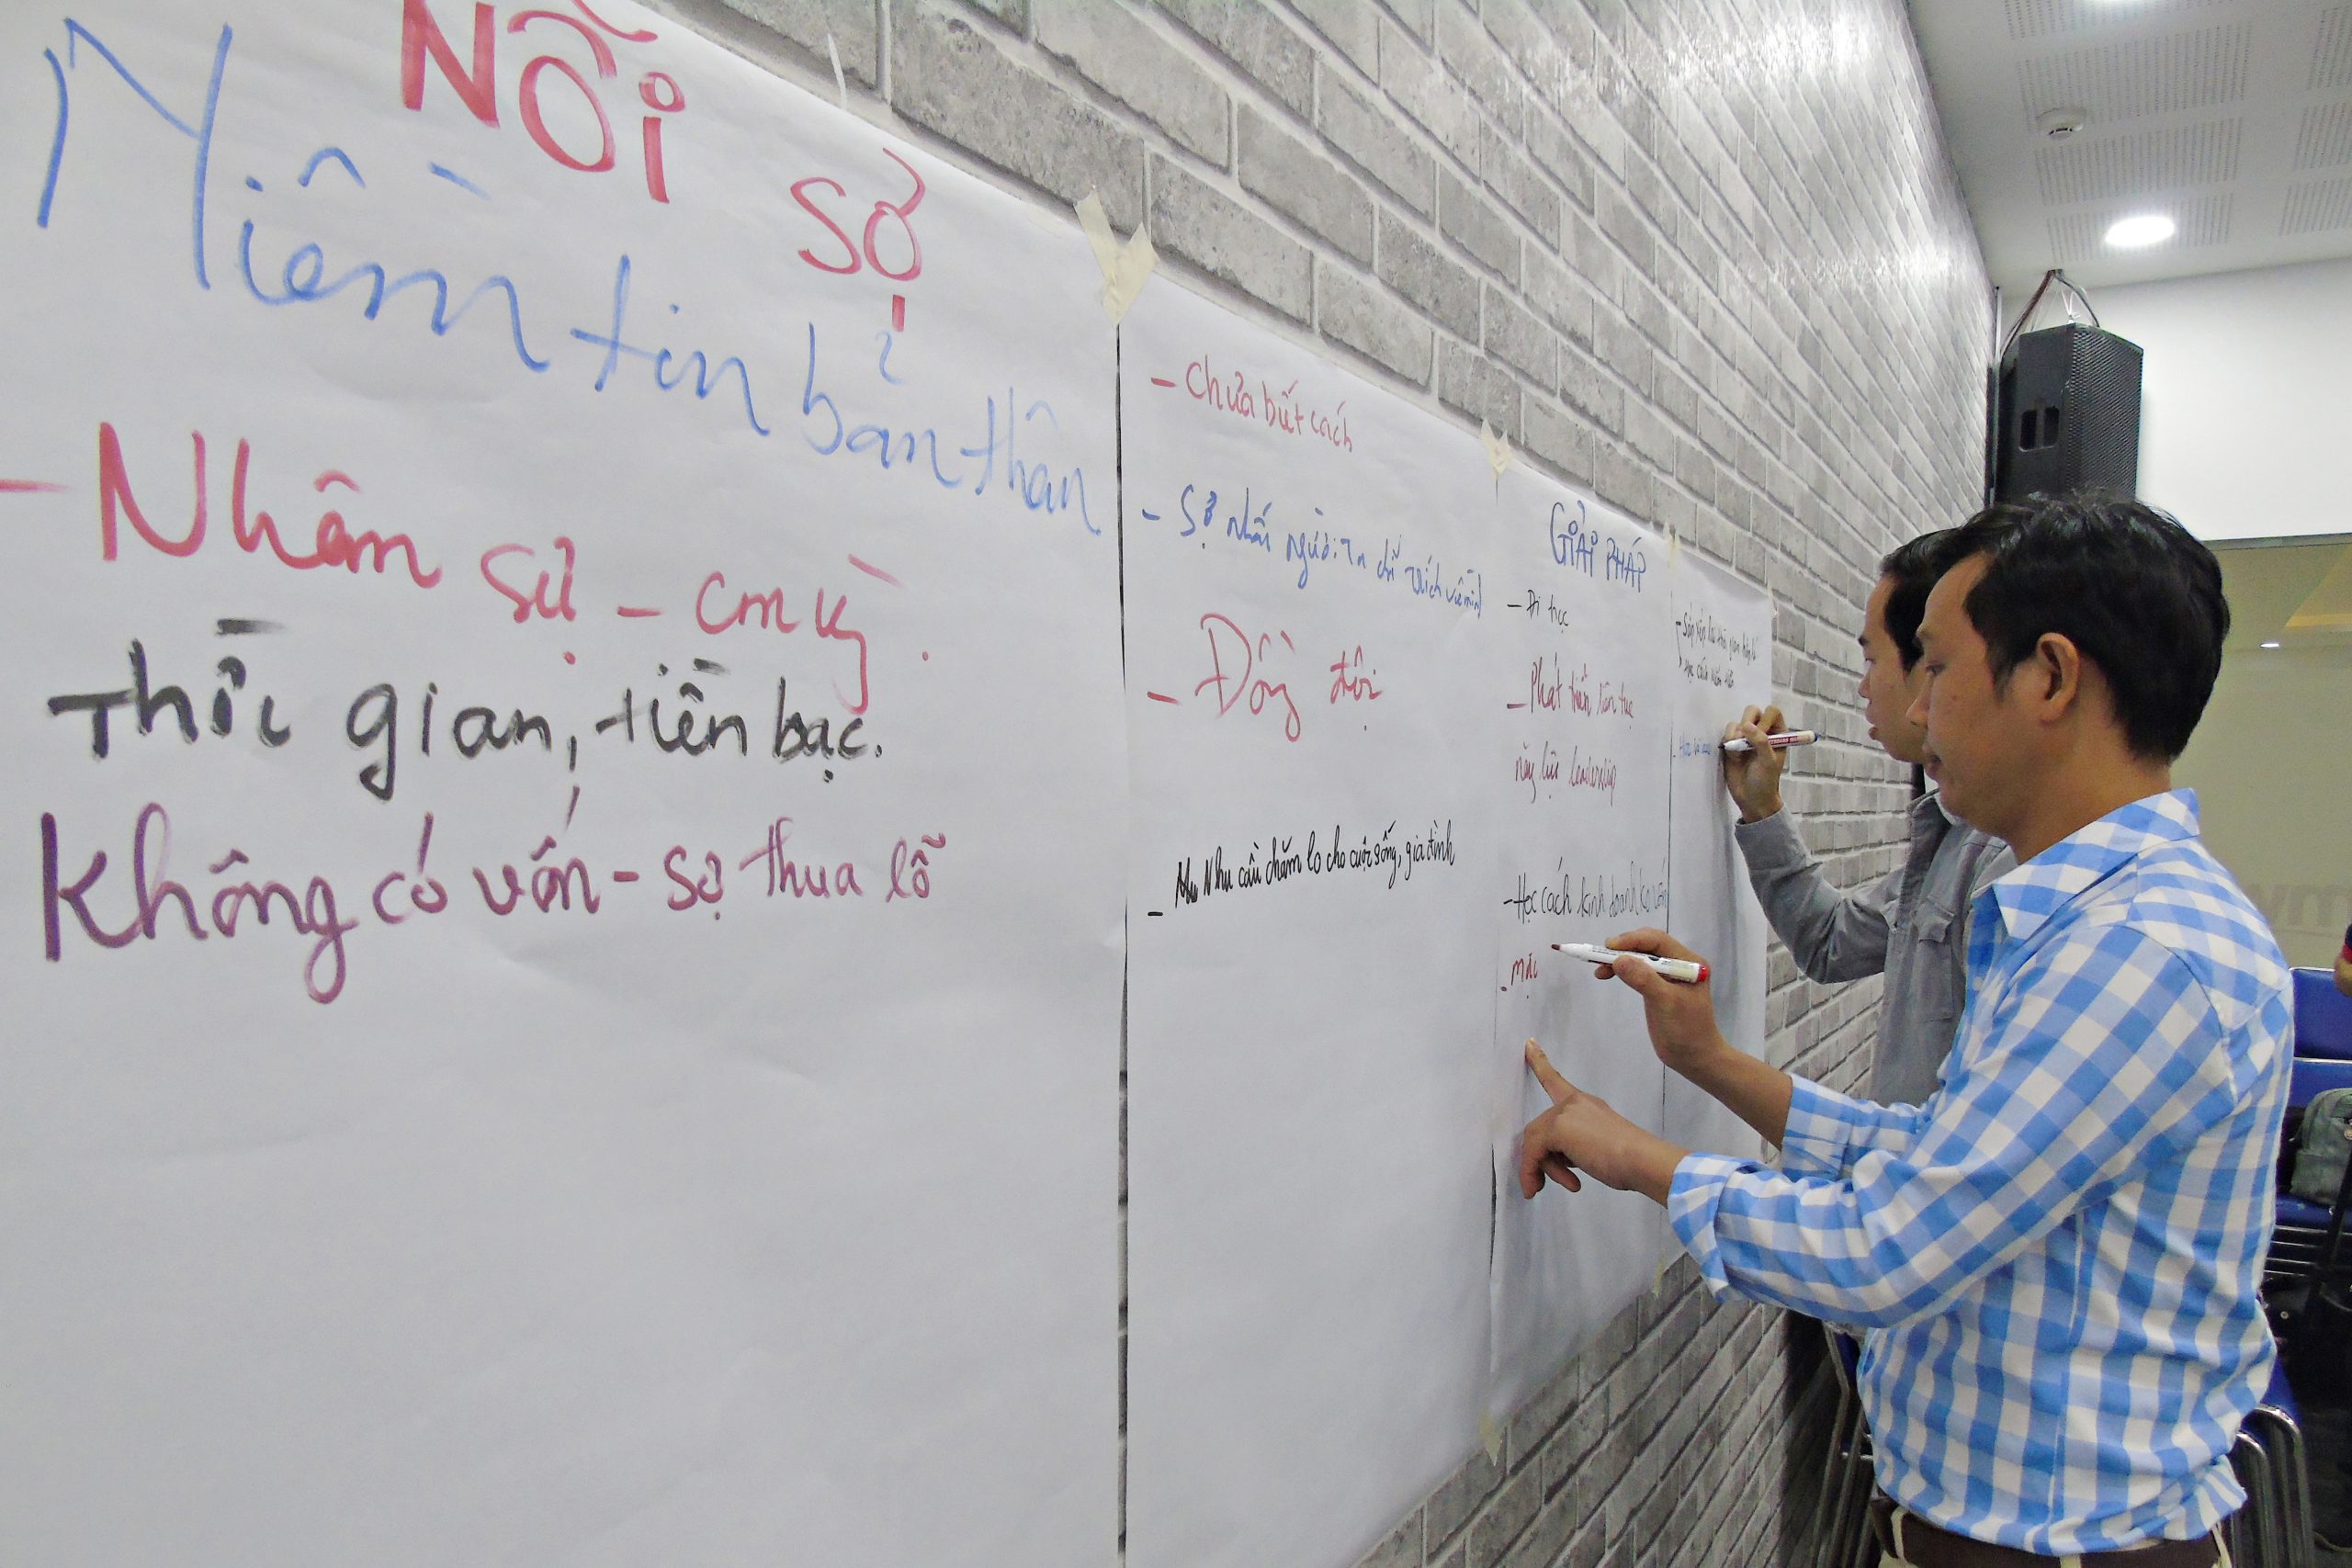 Nỗi sợ
Niềm tin bản thân
- Nhân sự - cm kỹ.
Thời gian, tiền bạc.
Không có vốn - sợ thua lỗ
- Chưa biết cách
- Sợ người ta chỉ trích
- Đồng đội
- Nhu cầu chăm lo cho cuộc sống, gia đình
GIẢI PHÁP
- Đi học
- Phát triển liên tục
năng lực leadership
- Học cách kinh doanh ko vốn
- mặc